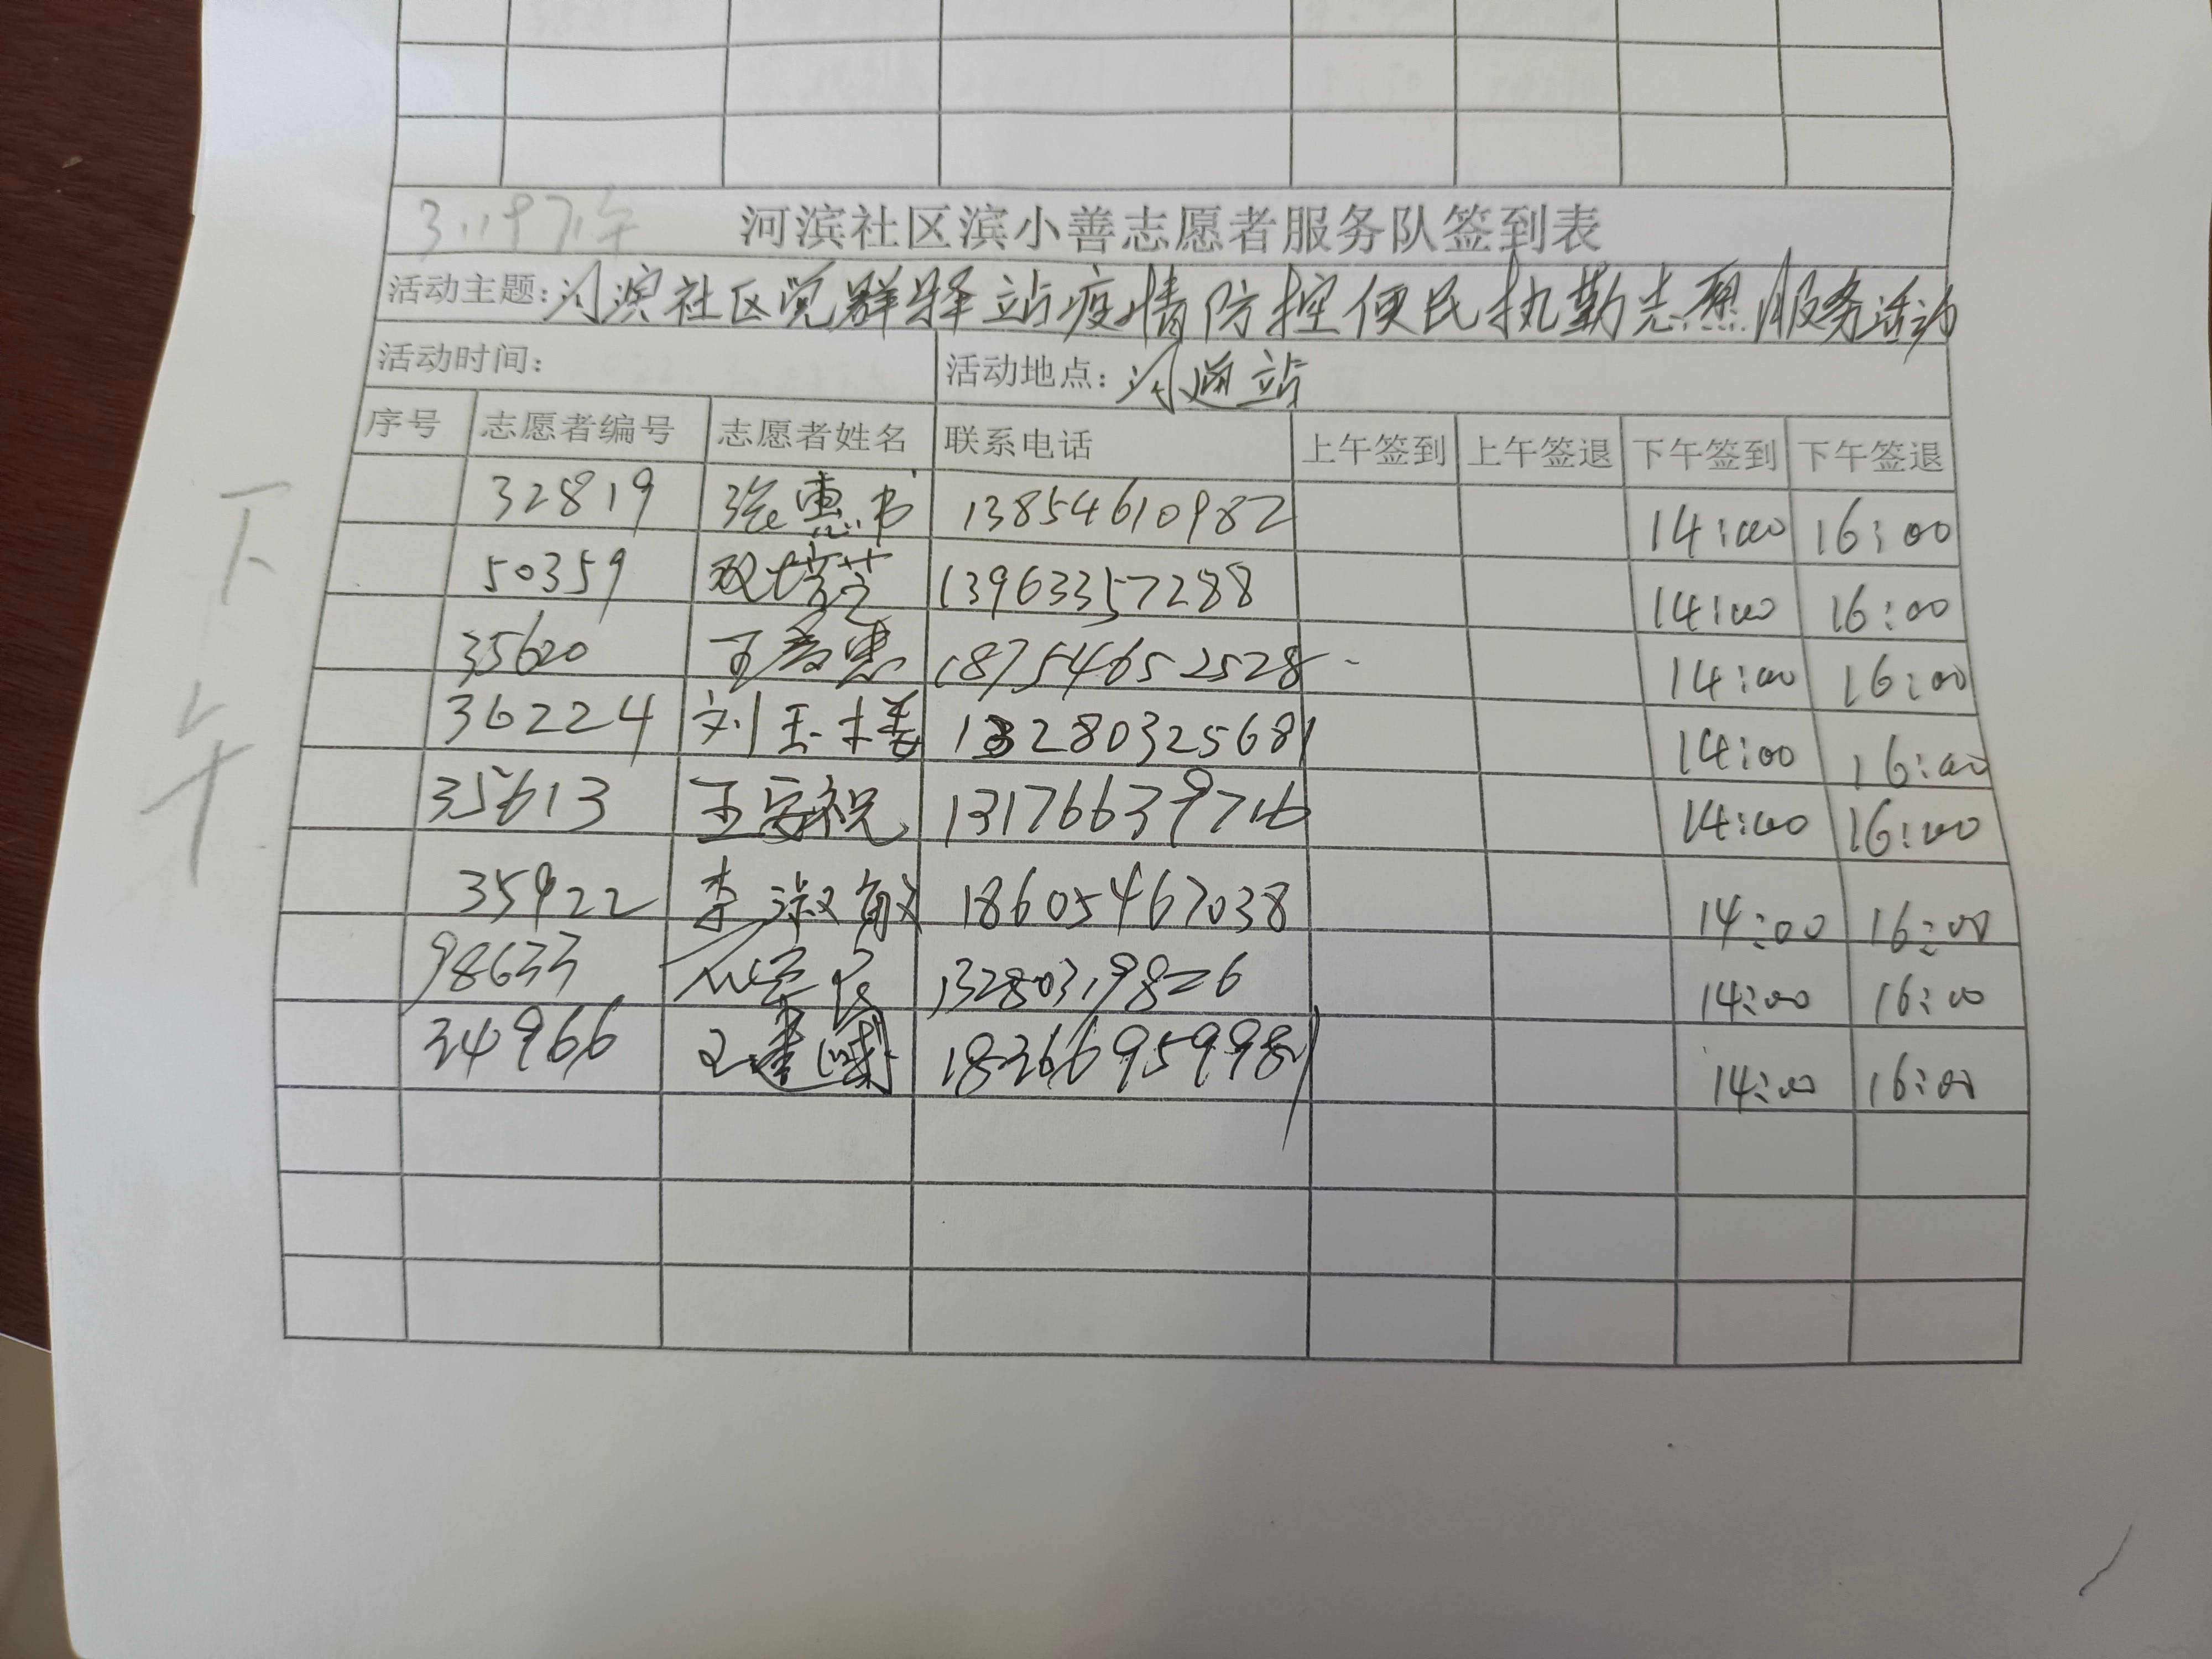 河滨社区滨小善志愿者服务队签到表
活动主题:河滨社区党群驿站疫情防控便民执勤志愿服务活动
活动时间: 活动地点:河道站
序号 志愿者编号 志愿者姓名 联系电话 上午签到 上午签退 下午签到 下午签退
32819 张惠书 13854610982 14:00 16:00
50359 13963357288 14:00 16:00
35620 18754652528 14:00 16:00
36224 刘玉楼 13280325681 14:00 16:00
35613 王安祝 13176639716 14:00 16:00
35922 李淑敏 18605467038 14:00 16:00
98633 13280319826 14:00 16:00
34966 王建国 18266959981 14:00 16:00
下午